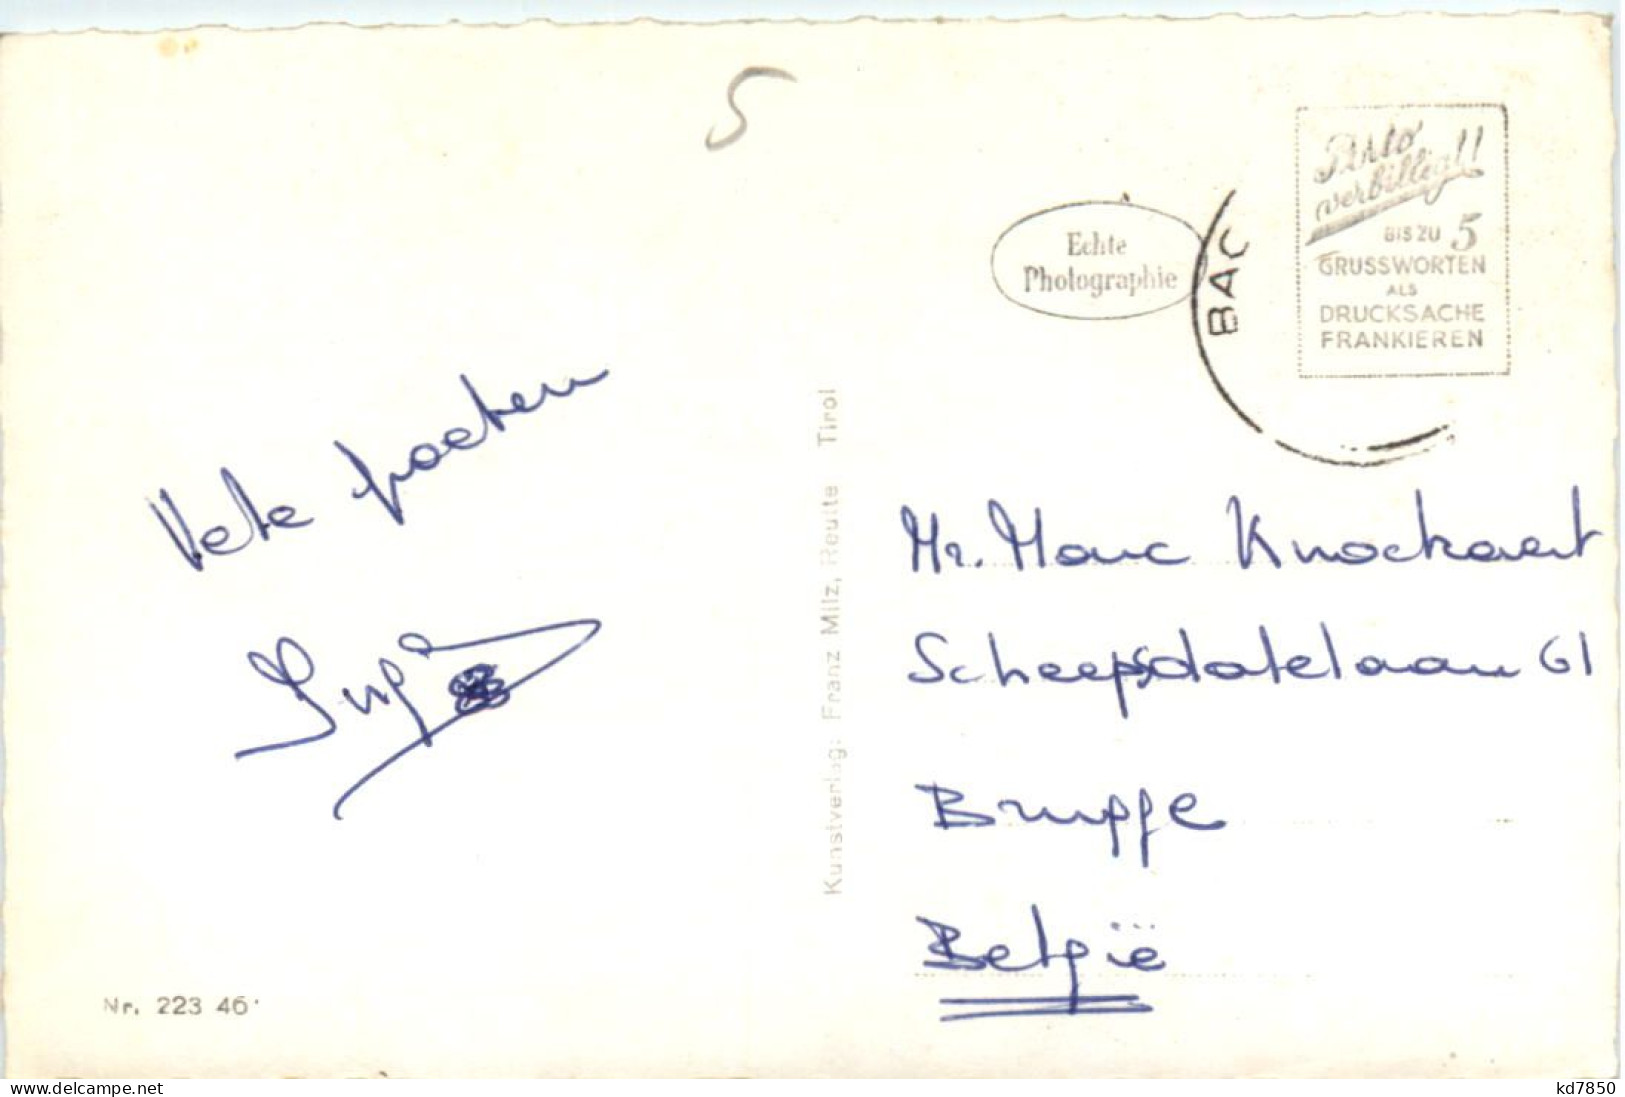 5
Porto
verbilligt!
BIS ZU 5
GRUSSWORTEN
ALS
DRUCKSACHE
FRANKIEREN
Echte
Photographie
BAC
Vele groeten
Kunstverlag: Franz Milz, Reutte Tirol
Mr. Marc Knockaert
Scheepsdalelaan 61
Brugge
België
Nr. 223 46
www.delcampe.net
kd7850